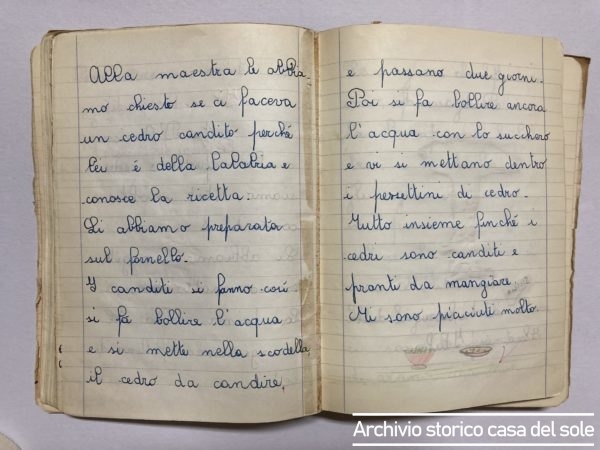 Alla maestra le abbia-
mo chiesto se ci faceva
un cedro candito perché
lei é della Calabria e
conosce la ricetta.
Li abbiamo preparata
sul fornello.
I canditi si fanno cosí:
si fa bollire l'acqua
e si mette nella scodella
il cedro da candire,
e passano due giorni.
Poi si fa bollire ancora
l'acqua con lo succhero
e vi si mettano dentro
i pessettini di cedro.
Tutto insieme finché i
cedri sono canditi e
pronti da mangiare.
Mi sono piaciuti molto.
Archivio storico casa del sole